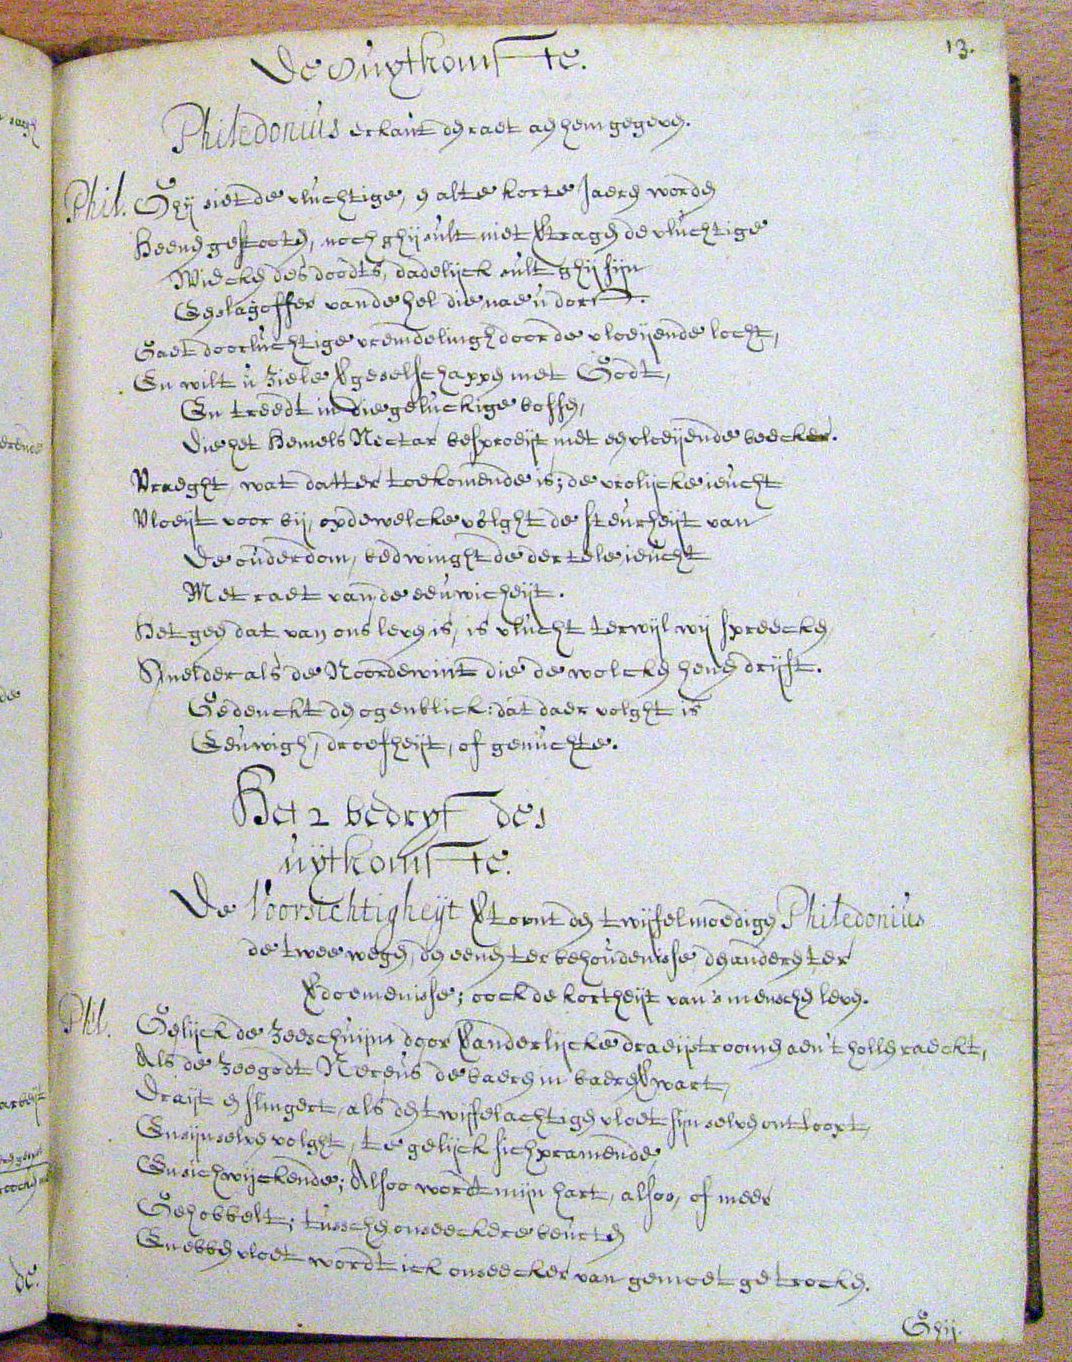 13.
De Uytkomste.
Philedonius erkaut den raet aen hem gegeven.
Phil. Ghij siet de vluchtige, en alte korte Jaeren worden
Heenen gestooten, noch ghij sult niet vertragen de vluchtige
Wiecken des doodts, dadelijck sult ghij sijn
Een slagoffer van de hel die nae u dorst.
Gaet doorluchtige vremdelingh door de vloeijende locht,
En wilt u ziele vergeselschappen met Godt,
En treedt in die geluckige bossen,
Die het Hemels Nectar besproeijt met een vloeijende beecker.
Vraeght, wat datter toekomende is; de vrolijcke ieucht
Vloeijt voor bij, op de welcke volght de steurheijt van
De ouderdom, bedwinght de dertele ieucht
Met raet van de eeuwicheijt.
Het geen dat van ons leven is, is vlucht terwijl wij spreecken
Snelder als de Noordewint die de wolcken henen drijft.
Gedenckt den ogenblick: dat daer volght is
Eeuwigh, droefheijt, of genuchte.
Het 2 bedryf der
uytkomste.
De Voorsichtigheijt vertoont den twijfelmoedigen Philedonius
de twee wegen, den eenen ter behoudenisse, den anderen ter
verdoemenisse; oock de kortheijt van 's menschen leven.
Phil. Gelijck de zeeschuijm door veranderlijcke draeijstroomen aen 't hollen raeckt,
Als de zeegodt Nereus de baeren in baeren verwart,
Draijt en slingert, als den twijfelachtigen vloet sijn selven ontloopt,
En sijn selven volght, te gelijck sich pramende,
En sich wijckende; Alsoo wordt mijn hart, alsoo, of meer
Gehobbelt; tusschen onseeckere beurten
En ebben vloet wordt ick onseecker van gemoet getrocken.
Ghij.